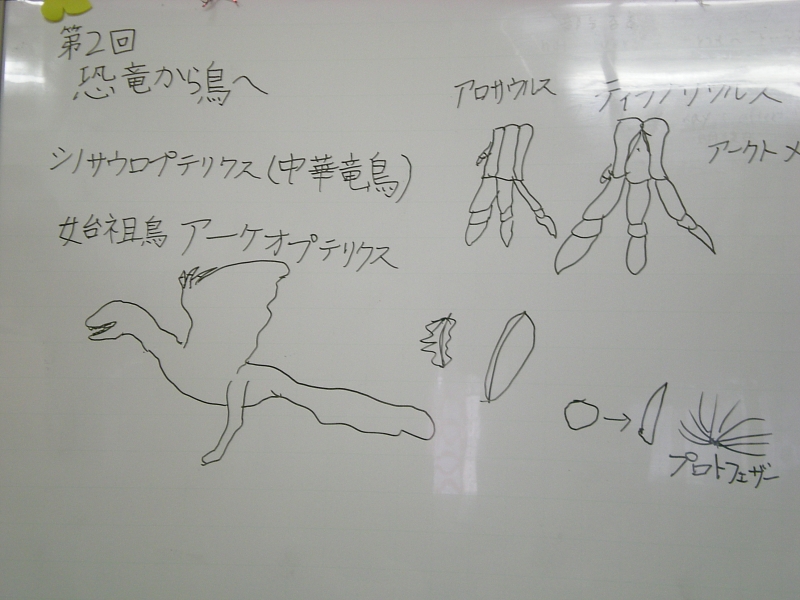 第2回
恐竜から鳥へ
シノサウロプテリクス(中華竜鳥)
始祖鳥 アーケオプテリクス
アロサウルス
アークトメ
プロトフェザー